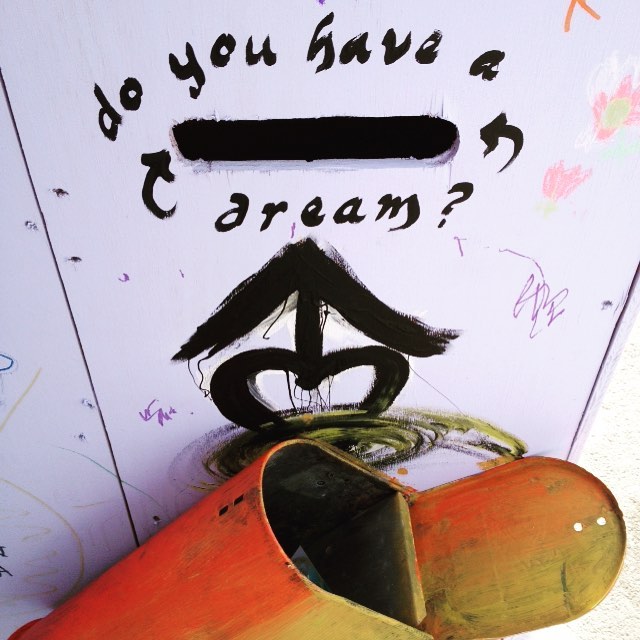 do you have a
dream?